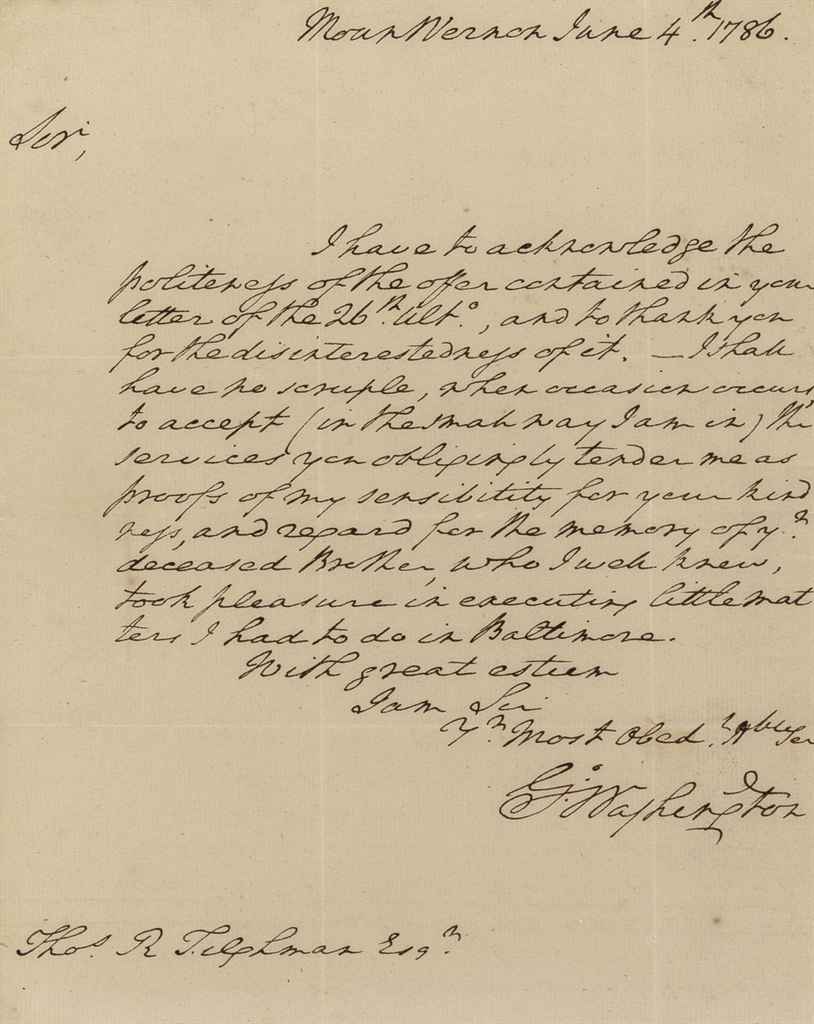 Mount Vernon June 4th. 1786.
Sir,
I have to acknowledge the
politeness of the offer contained in your
letter of the 26th. Ulto., and to thank you
for the disinterestedness of it. — I shall
have no scruple, when occasion occurs,
to accept (in the small way I am in) the
services you obligingly tender me as
proofs of my sensibility for your kind
ness, and regard for the memory of yr.
deceased Brother, who I well knew,
took pleasure in executing little mat
ters I had to do in Baltimore.
With great esteem
I am Sir
Yr. Most Obedt. Hble Ser
Go. Washington
Thos. R Tilghman Esqr.